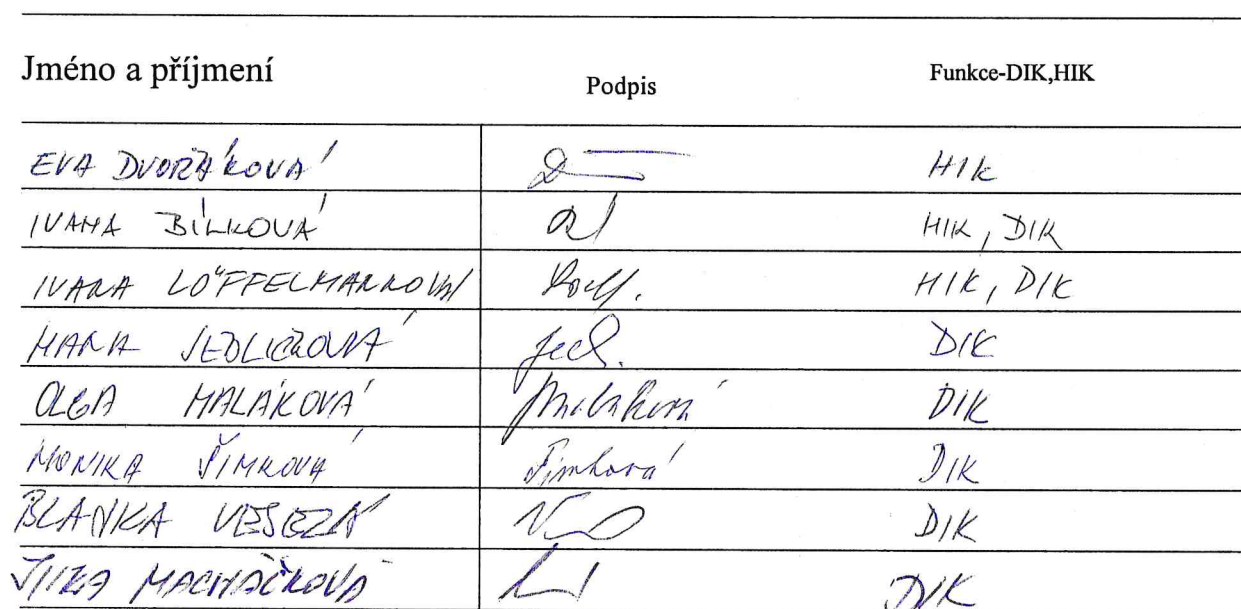 Jméno a příjmení Podpis Funkce-DIK,HIK
EVA DVOŘÁKOVÁ HIK
IVANA BÍLKOVÁ HIK, DIK
IVANA LÖFFELMANNOVÁ HIK, DIK
HANA SEDLIČKOVÁ DIK
OLGA MALÁKOVÁ Maláková DIK
MONIKA ŠIMKOVÁ Šimková DIK
BLANKA VESELÁ DIK
JITKA MACHAČKOVÁ DIK